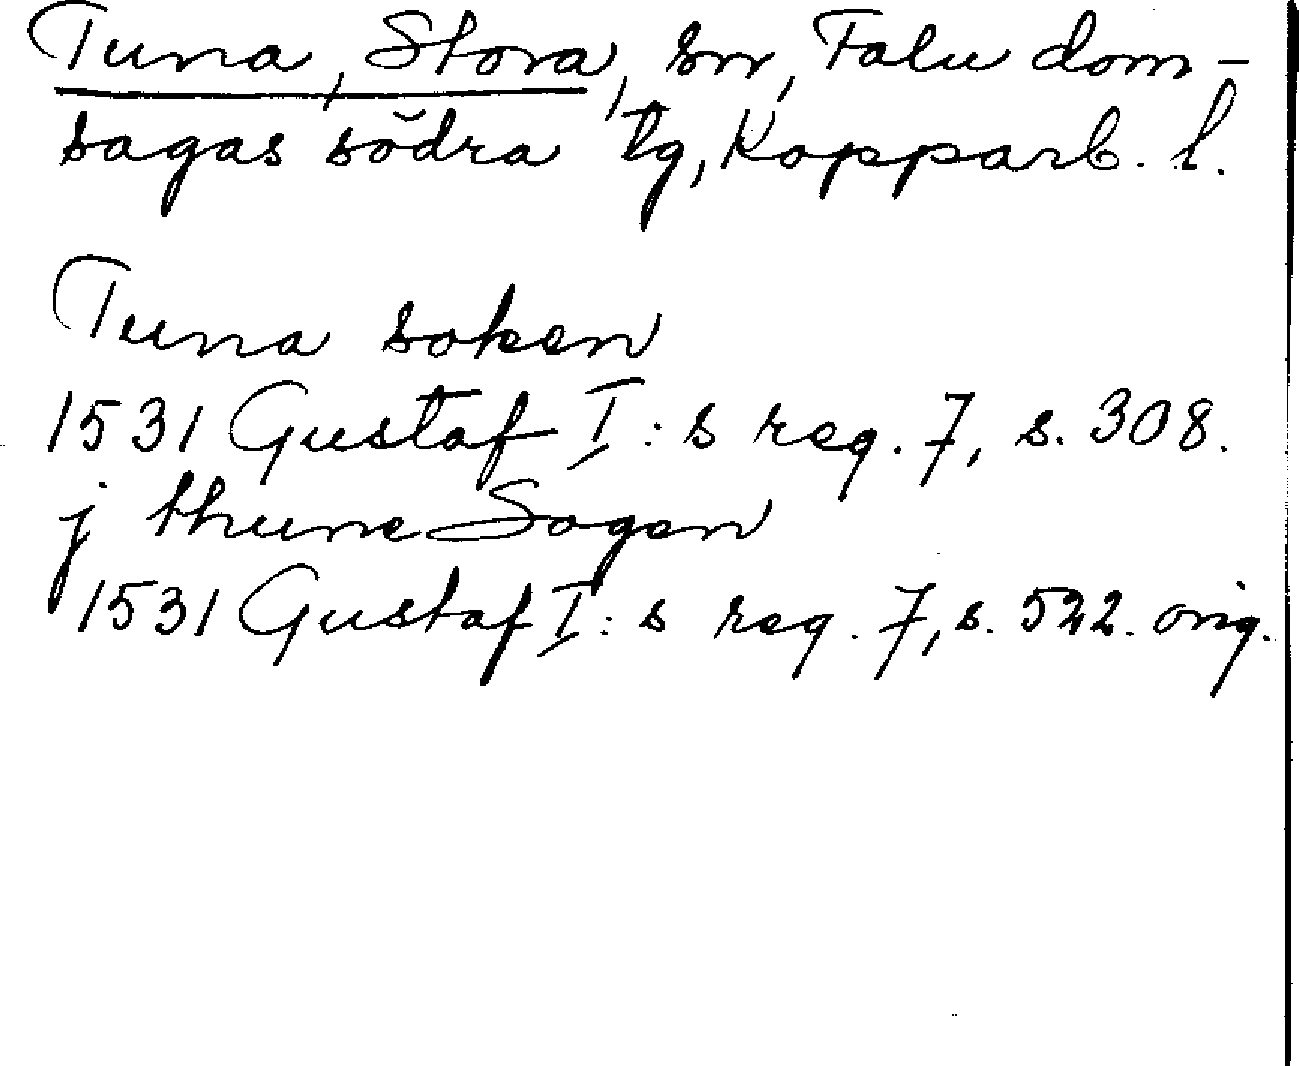 Tuna, Stora, sn, Falu dom-
sagas södra tg, Kopparb. l.
Tuna soken
1531 Gustaf I:s reg. 7, s. 308.
j thune Sogen
1531 Gustaf I:s reg. 7, s. 522. orig.